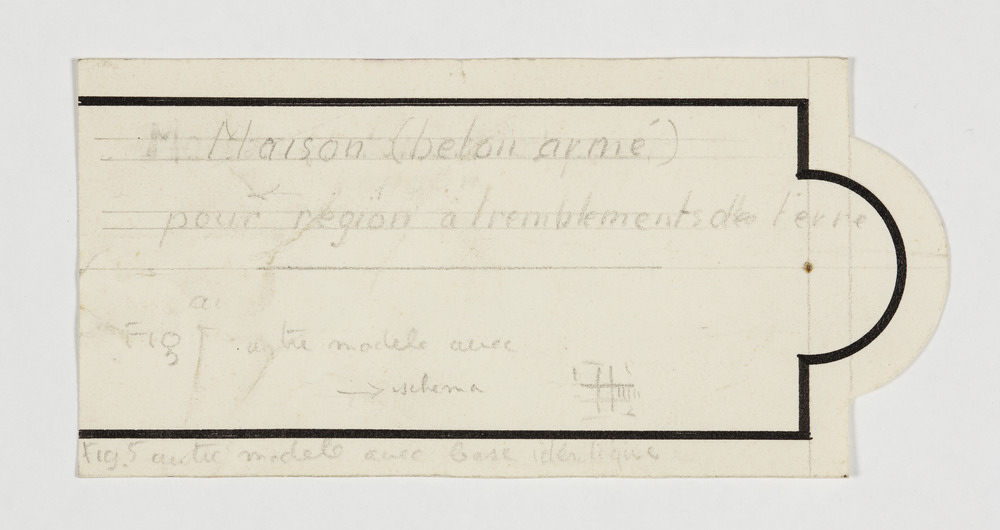 Maison (beton armé)
pour région à tremblements de terre
au
Fig 5 autre modele avec
→ schema
Fig. 5 autre modele avec base identique